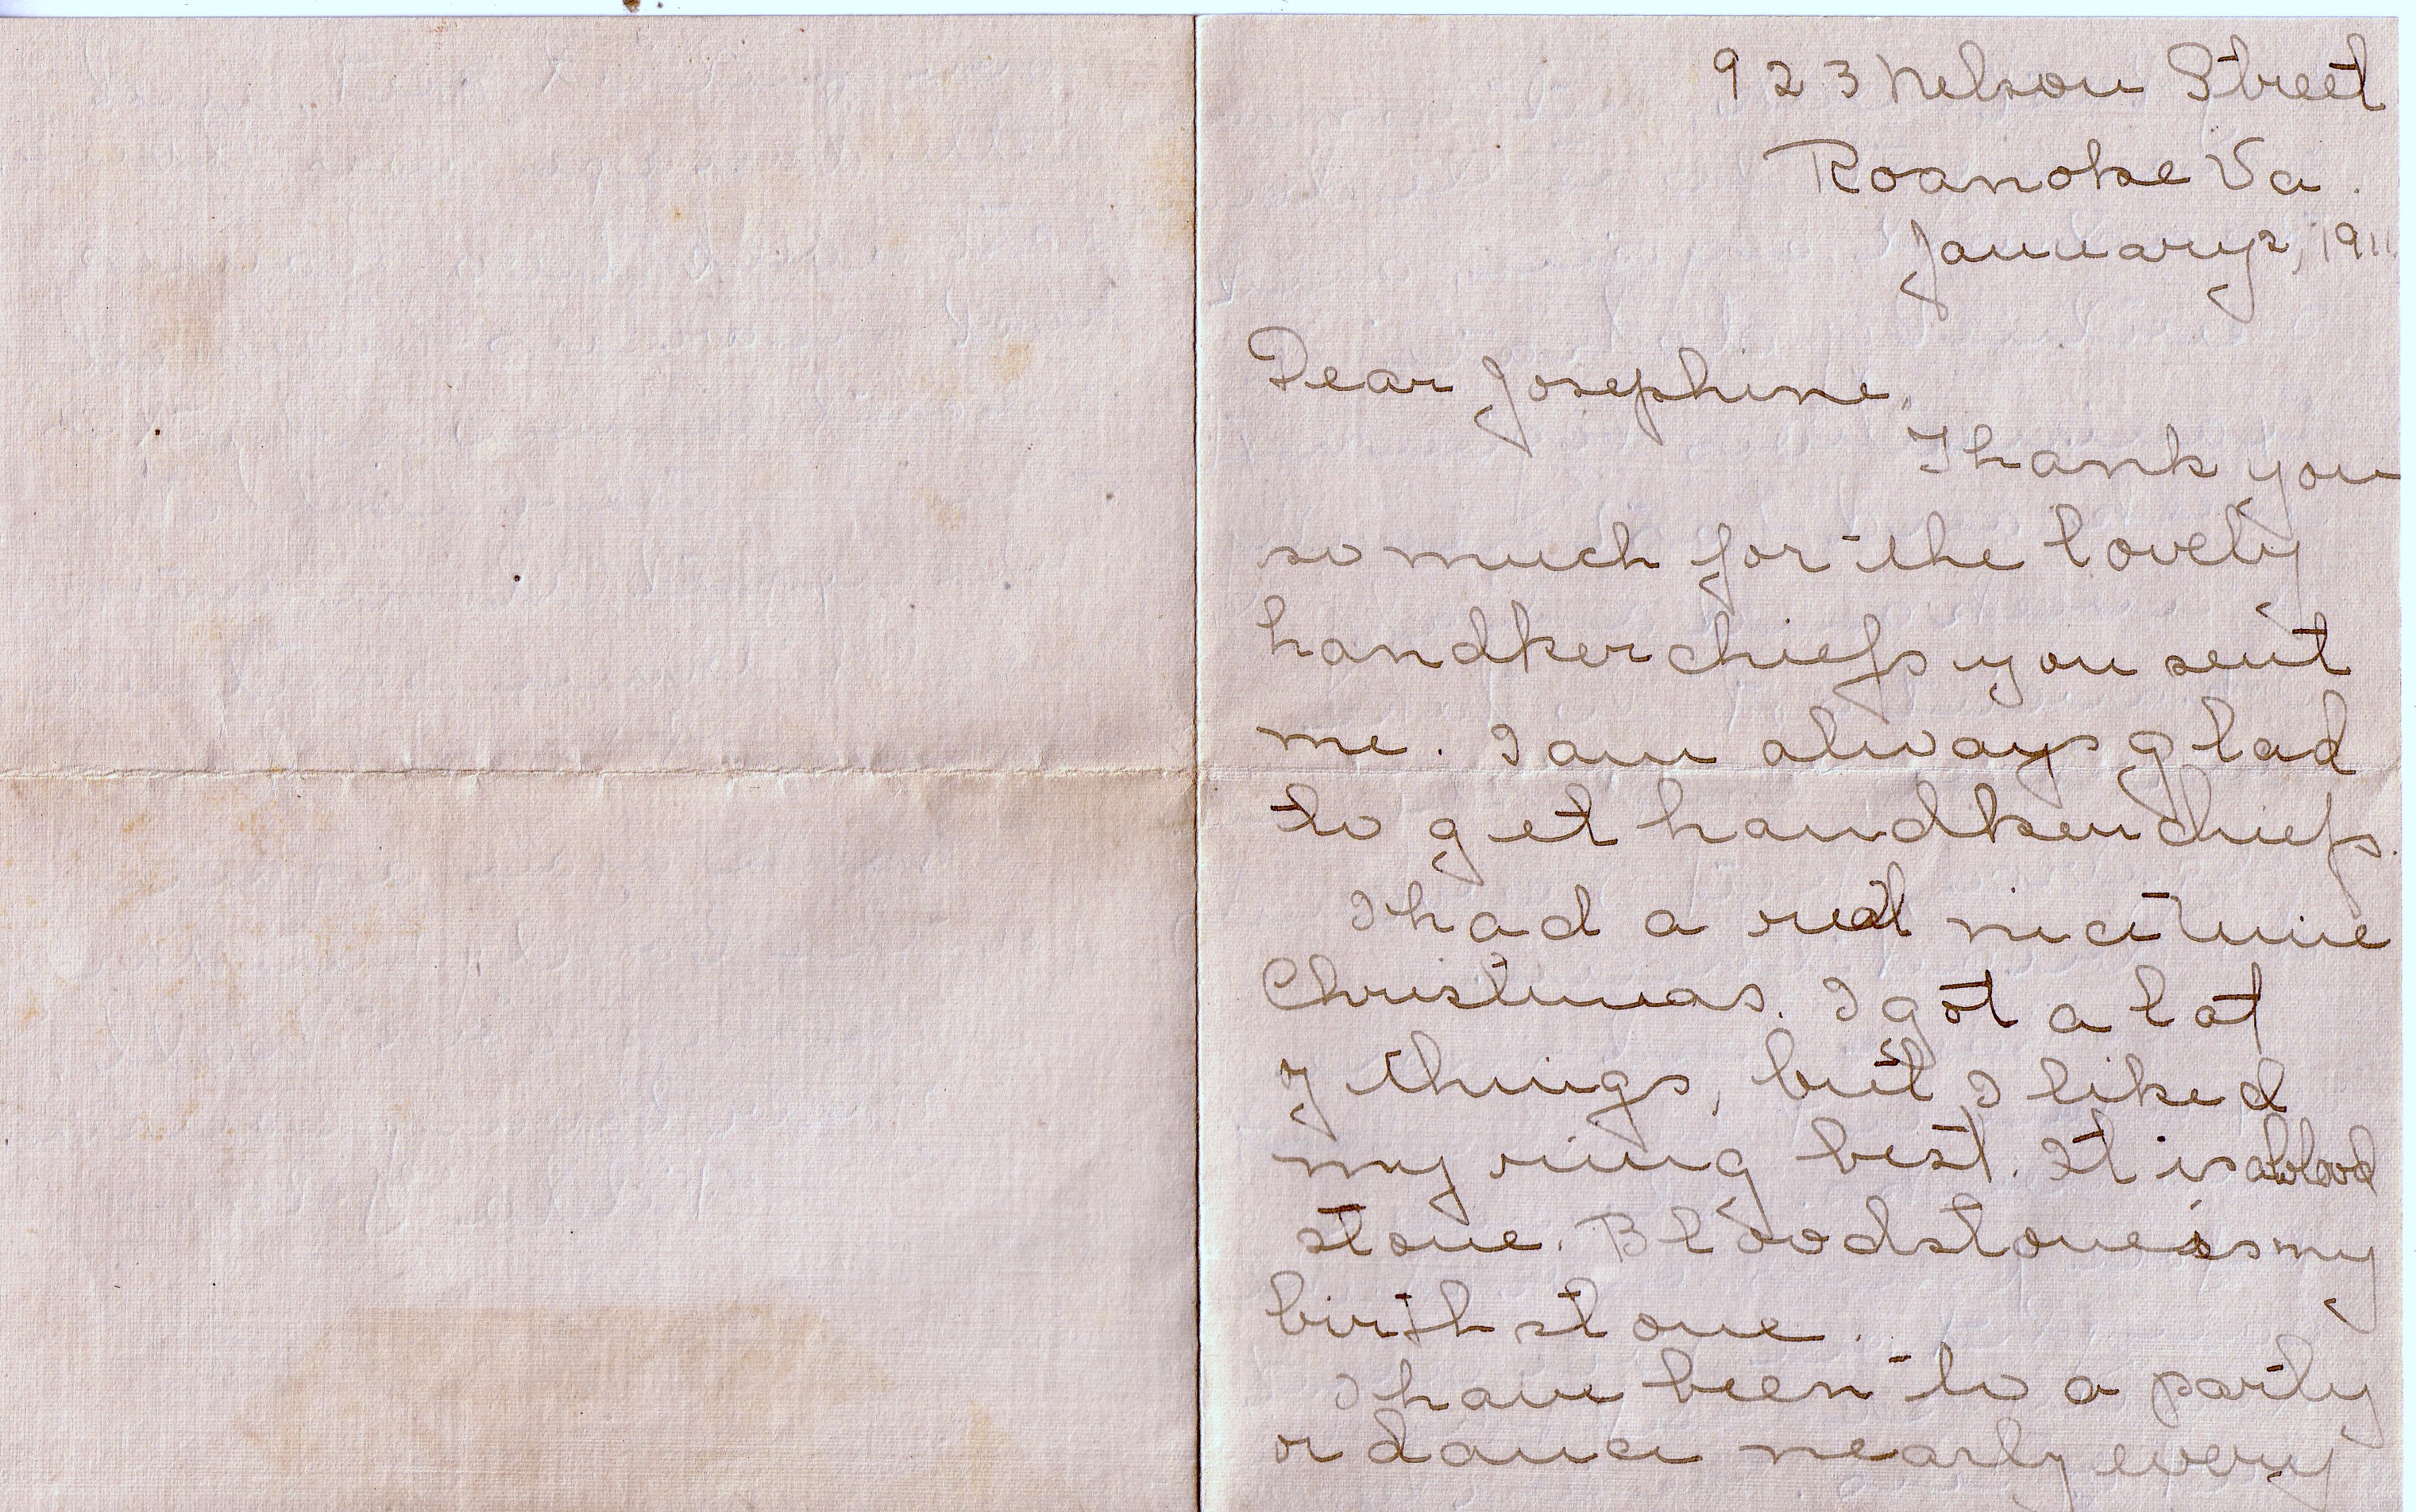 923 Nelson Street
Roanoke Va.
January 2, 1911.
Dear Josephine,
Thank you
so much for the lovely
handkerchiefs you sent
me. I am always glad
to get handkerchiefs.
I had a real nice time
Christmas. I got a lot
of things, but I liked
my ring best. It is a blood
stone. Bloodstone is my
birth stone.
I have been to a party
or dance nearly every